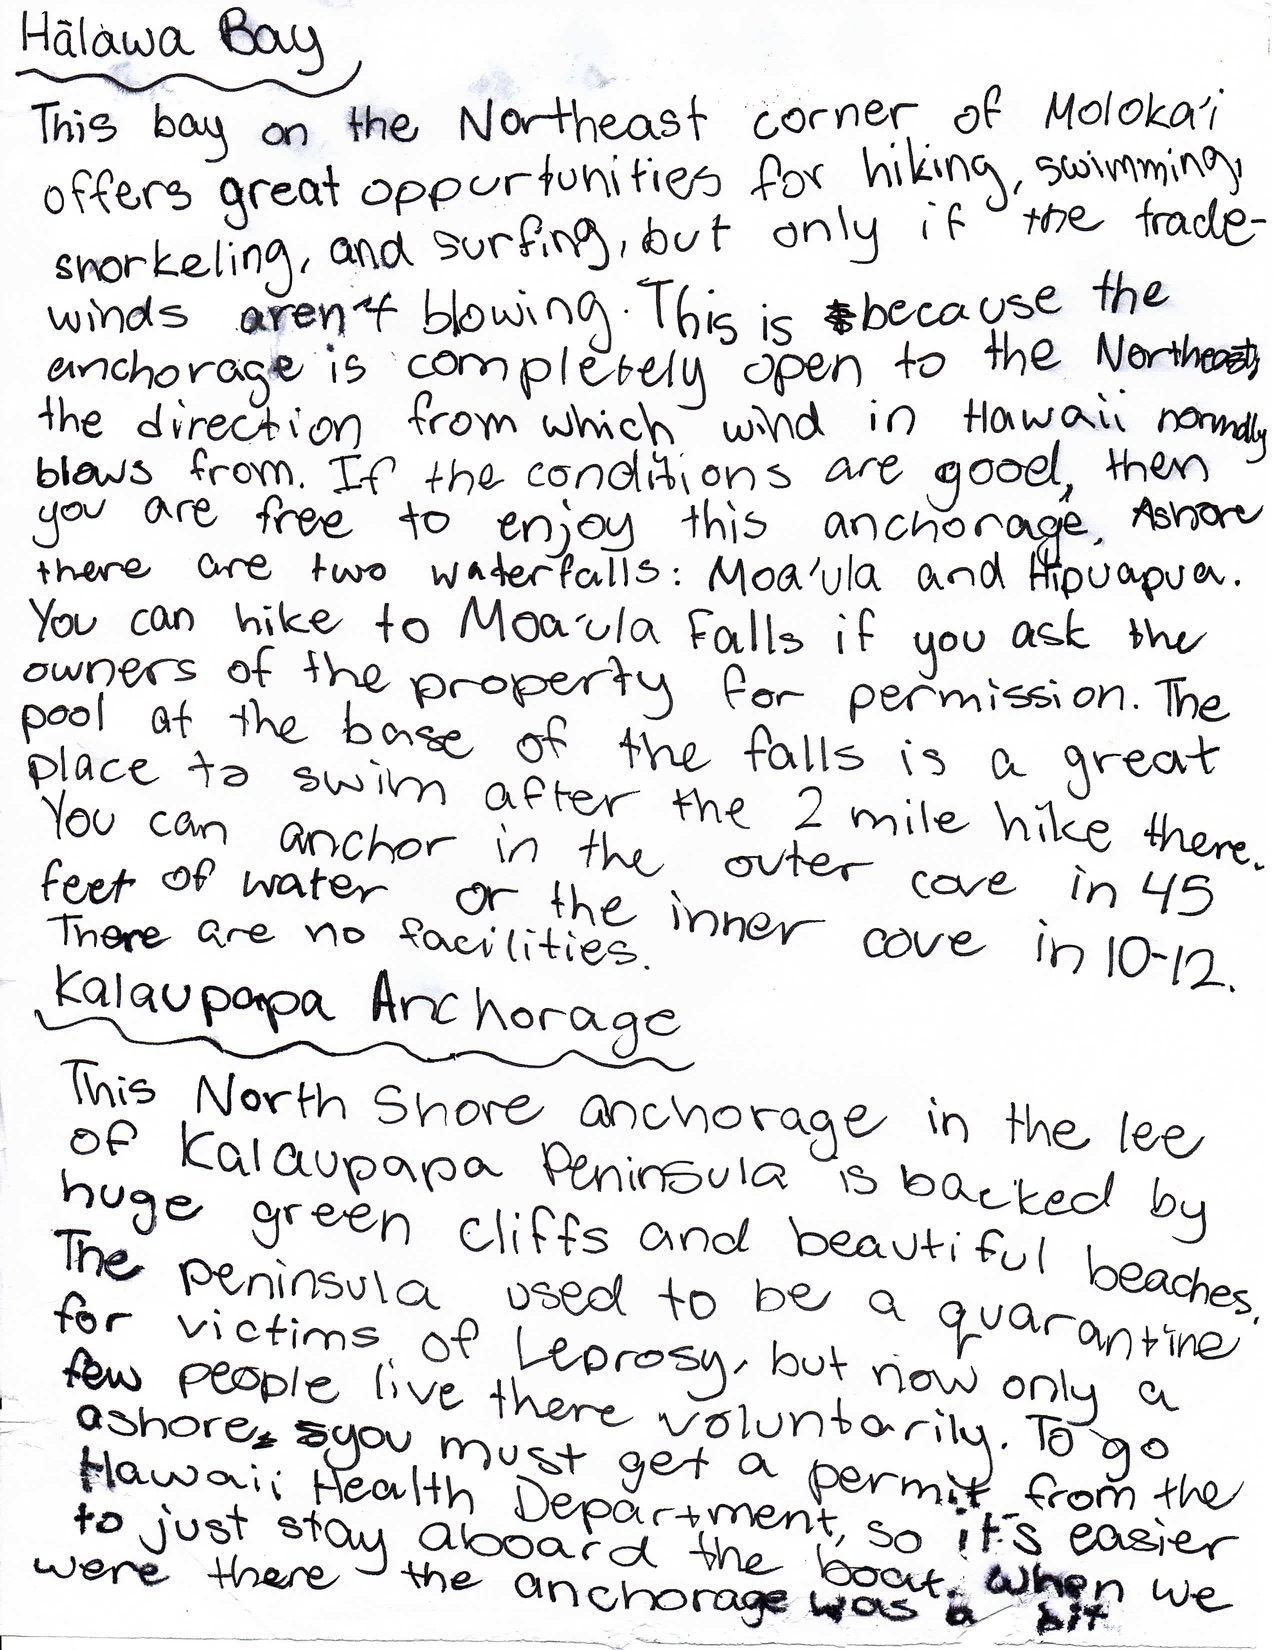 Hālawa Bay
This bay on the Northeast corner of Moloka'i
offers great oppurtunities for hiking, swimming,
snorkeling, and surfing, but only if the trade-
winds aren't blowing. This is because the
anchorage is completely open to the Northeast,
the direction from which wind in Hawaii normally
blows from. If the conditions are good, then
you are free to enjoy this anchorage. Ashore
there are two waterfalls: Moa'ula and Hipuapua.
You can hike to Moa'ula Falls if you ask the
owners of the property for permission. The
pool at the base of the falls is a great
place to swim after the 2 mile hike there.
You can anchor in the outer cove in 45
feet of water or the inner cove in 10-12.
There are no facilities.
Kalaupapa Anchorage
This North Shore anchorage in the lee
of Kalaupapa Peninsula is backed by
huge green cliffs and beautiful beaches.
The peninsula used to be a quarantine
for victims of Leprosy, but now only a
few people live there voluntarily. To go
ashore, you must get a permit from the
Hawaii Health Department, so it's easier
to just stay aboard the boat. When we
were there the anchorage was a bit